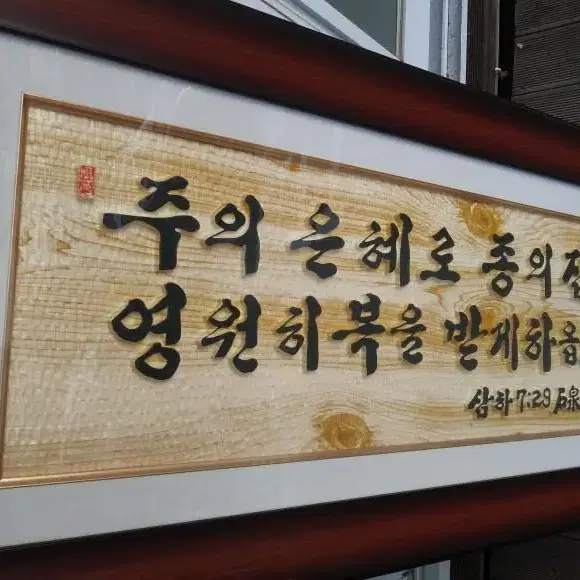 주의 은혜로 종의
영원히 복을 받게 하옵
삼하 7:28 石泉